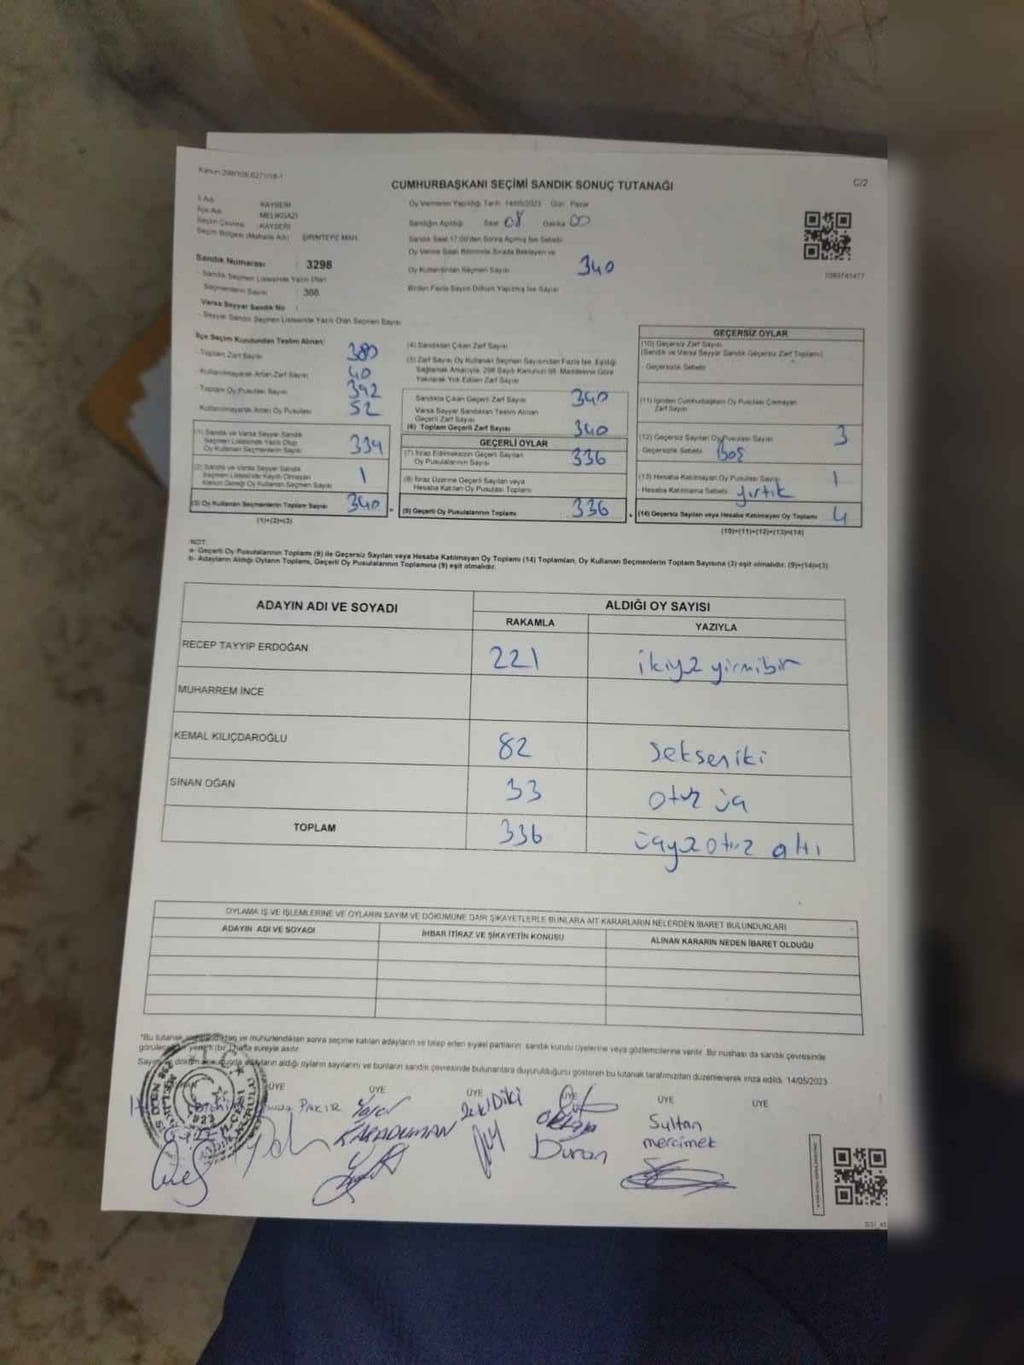 Kanun:298/105,6271/18-1
C/2
CUMHURBAŞKANI SEÇİMİ SANDIK SONUÇ TUTANAĞI
İl Adı : KAYSERİ
İlçe Adı : MELİKGAZİ
Seçim Çevresi : KAYSERİ
Seçim Bölgesi (Muhtarlık Adı) : ŞİRİNTEPE MAH.
Oy Vermenin Yapıldığı Tarih: 14/05/2023 Gün: Pazar
Sandığın Açıldığı Saat 08 Dakika 00
Sandık Saat 17:00'den Sonra Açılmış İse Sebebi
Oy Verme Saati Bitiminde Sırada Bekleyen ve
Oy Kullandırılan Seçmen Sayısı 340
Birden Fazla Sayım Döküm Yapılmış İse Sayısı
Sandık Numarası : 3298
- Sandık Seçmen Listesinde Yazılı Olan
Seçmenlerin Sayısı : 366
Varsa Seyyar Sandık No :
- Seyyar Sandık Seçmen Listesinde Yazılı Olan Seçmen Sayısı :
İlçe Seçim Kurulundan Teslim Alınan:
- Toplam Zarf Sayısı 380
- Kullanılmayarak Artan Zarf Sayısı 40
- Toplam Oy Pusulası Sayısı 392
- Kullanılmayarak Artan Oy Pusulası 52
(1) Sandık ve Varsa Seyyar Sandık
Seçmen Listesinde Yazılı Olup
Oy Kullanan Seçmenlerin Sayısı 334
(2) Sandık ve Varsa Seyyar Sandık
Seçmen Listesinde Kayıtlı Olmayan
Kanun Gereği Oy Kullanan Seçmen Sayısı 1
(3) Oy Kullanan Seçmenlerin Toplam Sayısı 340
(1)+(2)=(3)
(4) Sandıktan Çıkan Zarf Sayısı
(5) Zarf Sayısı Oy Kullanan Seçmen Sayısından Fazla İse, Eşitliği
Sağlamak Amacıyla, 298 Sayılı Kanunun 98. Maddesine Göre
Yakılarak Yok Edilen Zarf Sayısı
Sandıkta Çıkan Geçerli Zarf Sayısı 340
Varsa Seyyar Sandıktan Teslim Alınan
Geçerli Zarf Sayısı
(6) Toplam Geçerli Zarf Sayısı 340
GEÇERLİ OYLAR
(7) İtiraz Edilmeksizin Geçerli Sayılan
Oy Pusulalarının Sayısı 336
(8) İtiraz Üzerine Geçerli Sayılan veya
Hesaba Katılan Oy Pusulası Toplamı
(9) Geçerli Oy Pusulalarının Toplamı 336
GEÇERSİZ OYLAR
(10) Geçersiz Zarf Sayısı
(Sandık ve Varsa Seyyar Sandık Geçersiz Zarf Toplamı)
- Geçersizlik Sebebi
(11) İçinden Cumhurbaşkanı Oy Pusulası Çıkmayan
Zarf Sayısı
(12) Geçersiz Sayılan Oy Pusulası Sayısı 3
Geçersizlik Sebebi Boş
(13) Hesaba Katılmayan Oy Pusulası Sayısı 1
- Hesaba Katılmama Sebebi yırtık
(14) Geçersiz Sayılan veya Hesaba Katılmayan Oy Toplamı 4
(10)+(11)+(12)+(13)=(14)
NOT:
a- Geçerli Oy Pusulalarının Toplamı (9) ile Geçersiz Sayılan veya Hesaba Katılmayan Oy Toplamı (14) Toplamları, Oy Kullanan Seçmenlerin Toplam Sayısına (3) eşit olmalıdır. (9)+(14)=(3)
b- Adayların Aldığı Oyların Toplamı, Geçerli Oy Pusulalarının Toplamına (9) eşit olmalıdır.
ADAYIN ADI VE SOYADI
ALDIĞI OY SAYISI
RAKAMLA YAZIYLA
RECEP TAYYİP ERDOĞAN 221 ikiyüz yirmibir
MUHARREM İNCE
KEMAL KILIÇDAROĞLU 82 Sekseniki
SİNAN OĞAN 33 otuz üç
TOPLAM 336 üçyüz otuz altı
OYLAMA İŞ VE İŞLEMLERİNE VE OYLARIN SAYIM VE DÖKÜMÜNE DAİR ŞİKAYETLERLE BUNLARA AİT KARARLARIN NELERDEN İBARET BULUNDUKLARI
ADAYIN ADI VE SOYADI İHBAR İTİRAZ VE ŞİKAYETİN KONUSU ALINAN KARARIN NEDEN İBARET OLDUĞU
"Bu tutanak ve mühürlendikten sonra seçime katılan adayların ve talep eden siyasi partilerin sandık kurulu üyelerine veya gözlemcilerine verilir. Bir nüshası da sandık çevresinde
görülecek yere 1 (bir) hafta süreyle asılır.
adayların aldığı oyların sayılarını ve bunların sandık çevresinde bulunanlara duyurulduğunu gösteren bu tutanak tarafımızdan düzenlenerek imza edildi. 14/05/2023
ÜYE ÜYE ÜYE ÜYE ÜYE ÜYE
PAKIR
KARADUMAN
Zeki Diki
Oktay
Duran
Sultan
mercimek